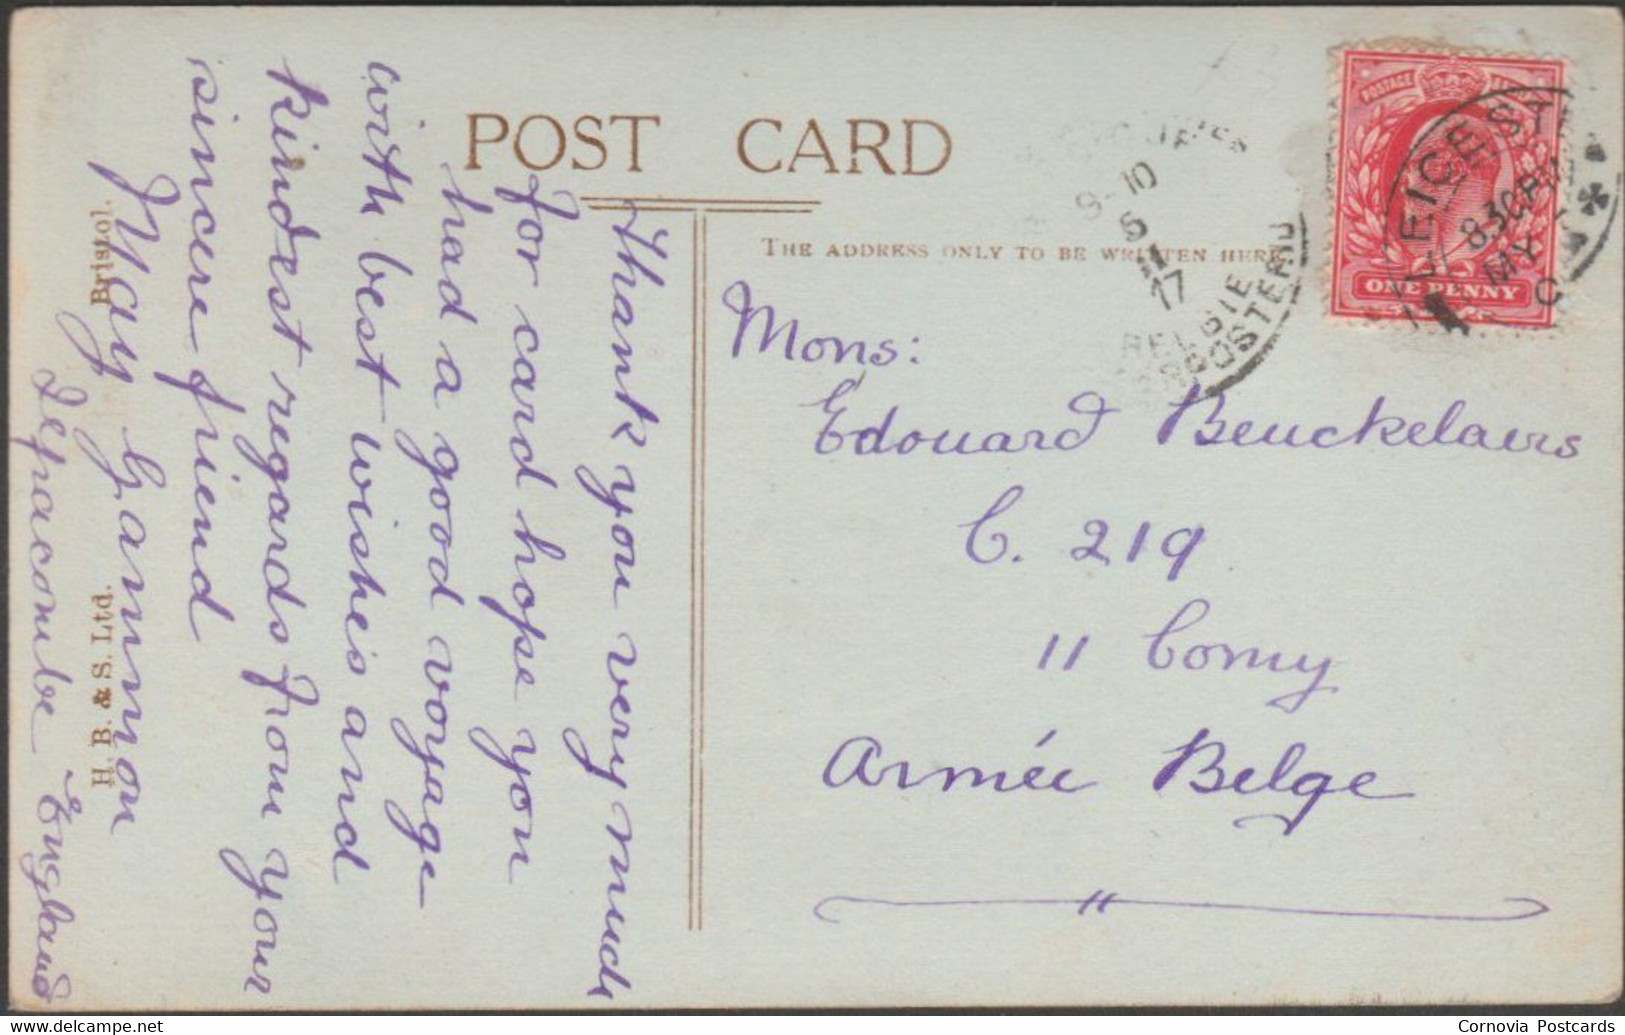 POST CARD
THE ADDRESS ONLY TO BE WRITTEN HERE
Thank you very much
for card hope you
had a good voyage
with best wishes and
kindest regards from your
sincere friend
May Gammon
Ilfracombe England
H. B. & S. Ltd. Bristol.
Mons:
Edouard Beuckelaers
C. 219
11 Comy
Armée Belge
9-10
5
17
BELGIE
POSTERIJ
POSTAGE
ONE PENNY
LEICE SQ
830PM
MY
C
Cornovia Postcards